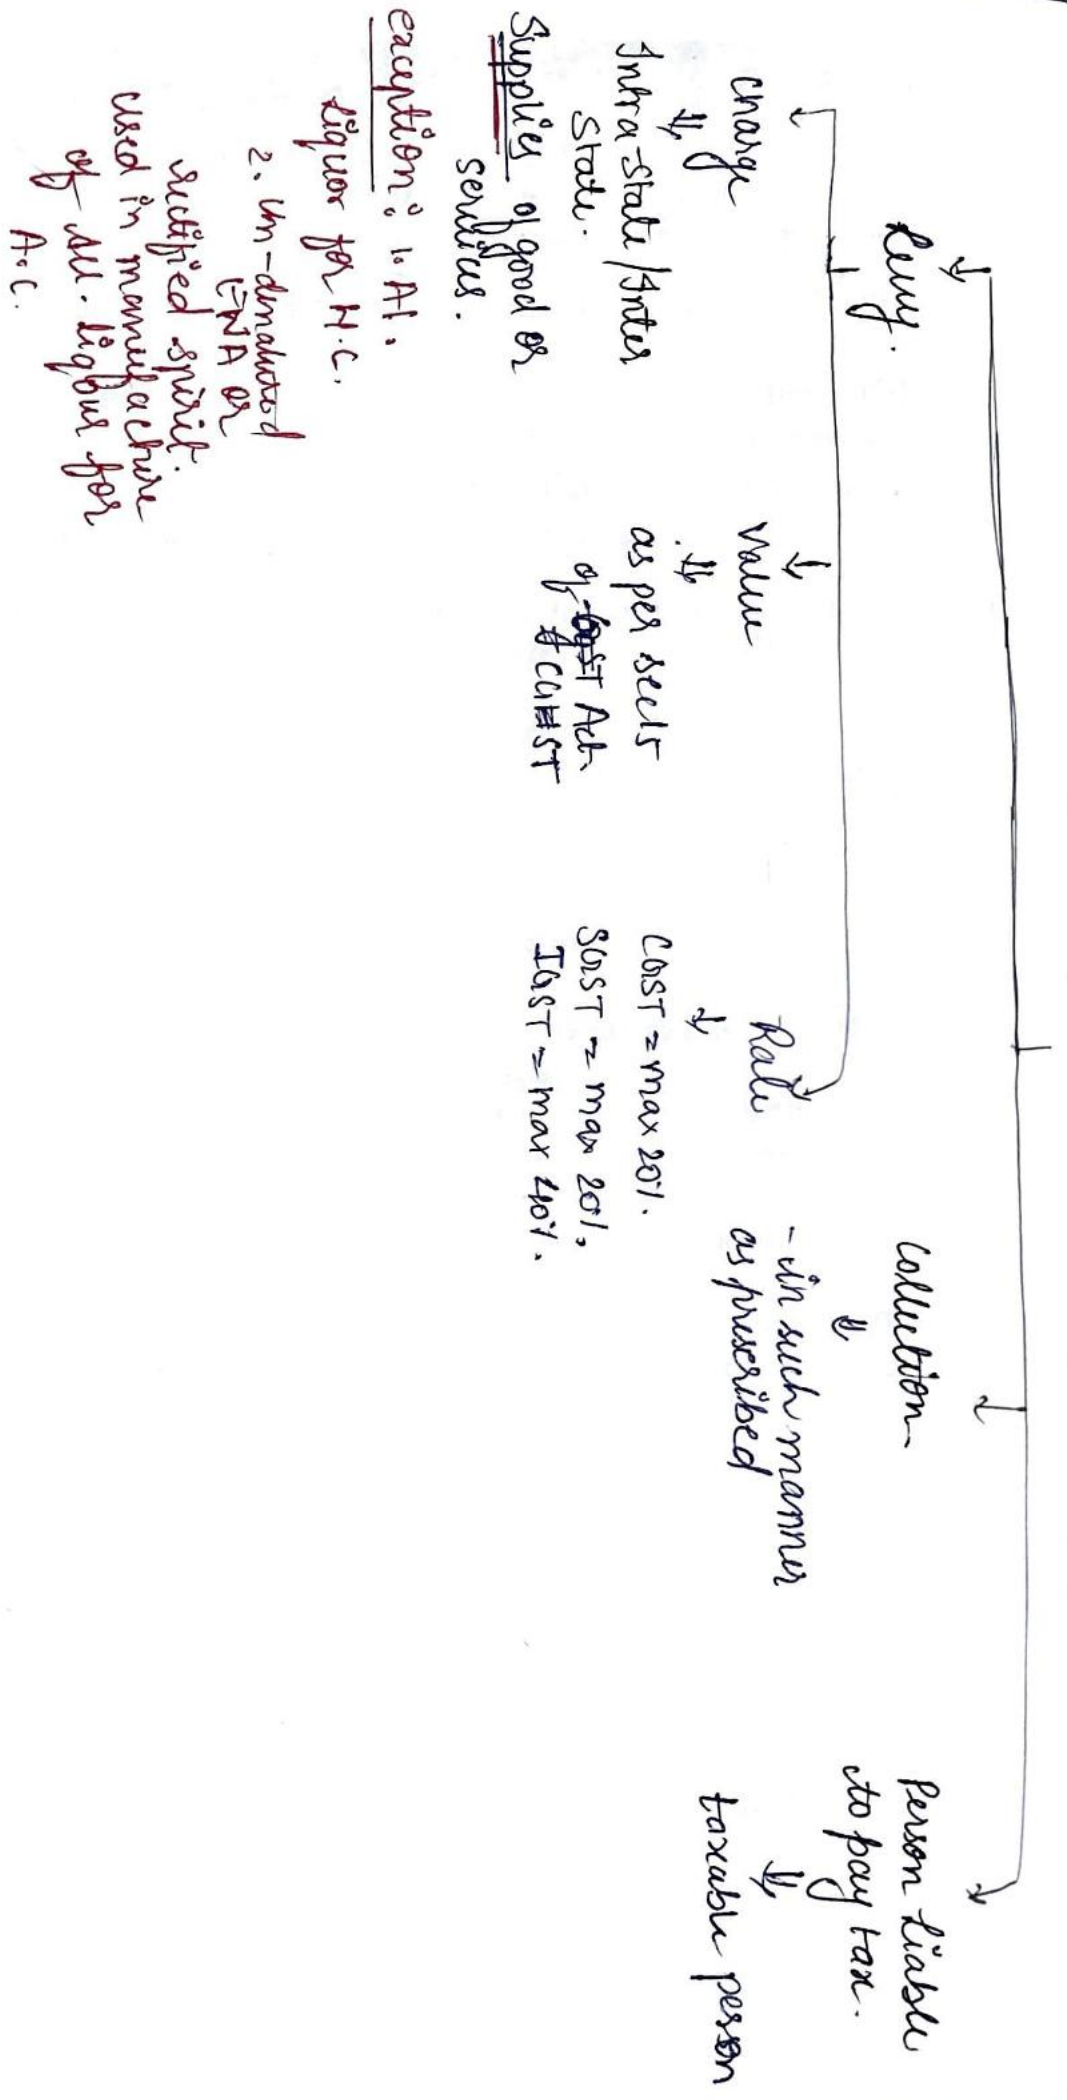 Levy.
Charge
Intra-State/Inter
State.
Supplies of good or
services.
exception: 1. Al.
Liquor for H.C.
2. Un-denatured
ENA or
rectified spirit.
used in manufacture
of All. liqour for
A.C.
Value
as per sec 15
of GST Act.
of CGST
Rate
CGST = max 20%.
SGST = max 20%.
IGST = max 40%.
Collection
- in such manner
as prescribed
Person Liable
to pay tax.
taxable person